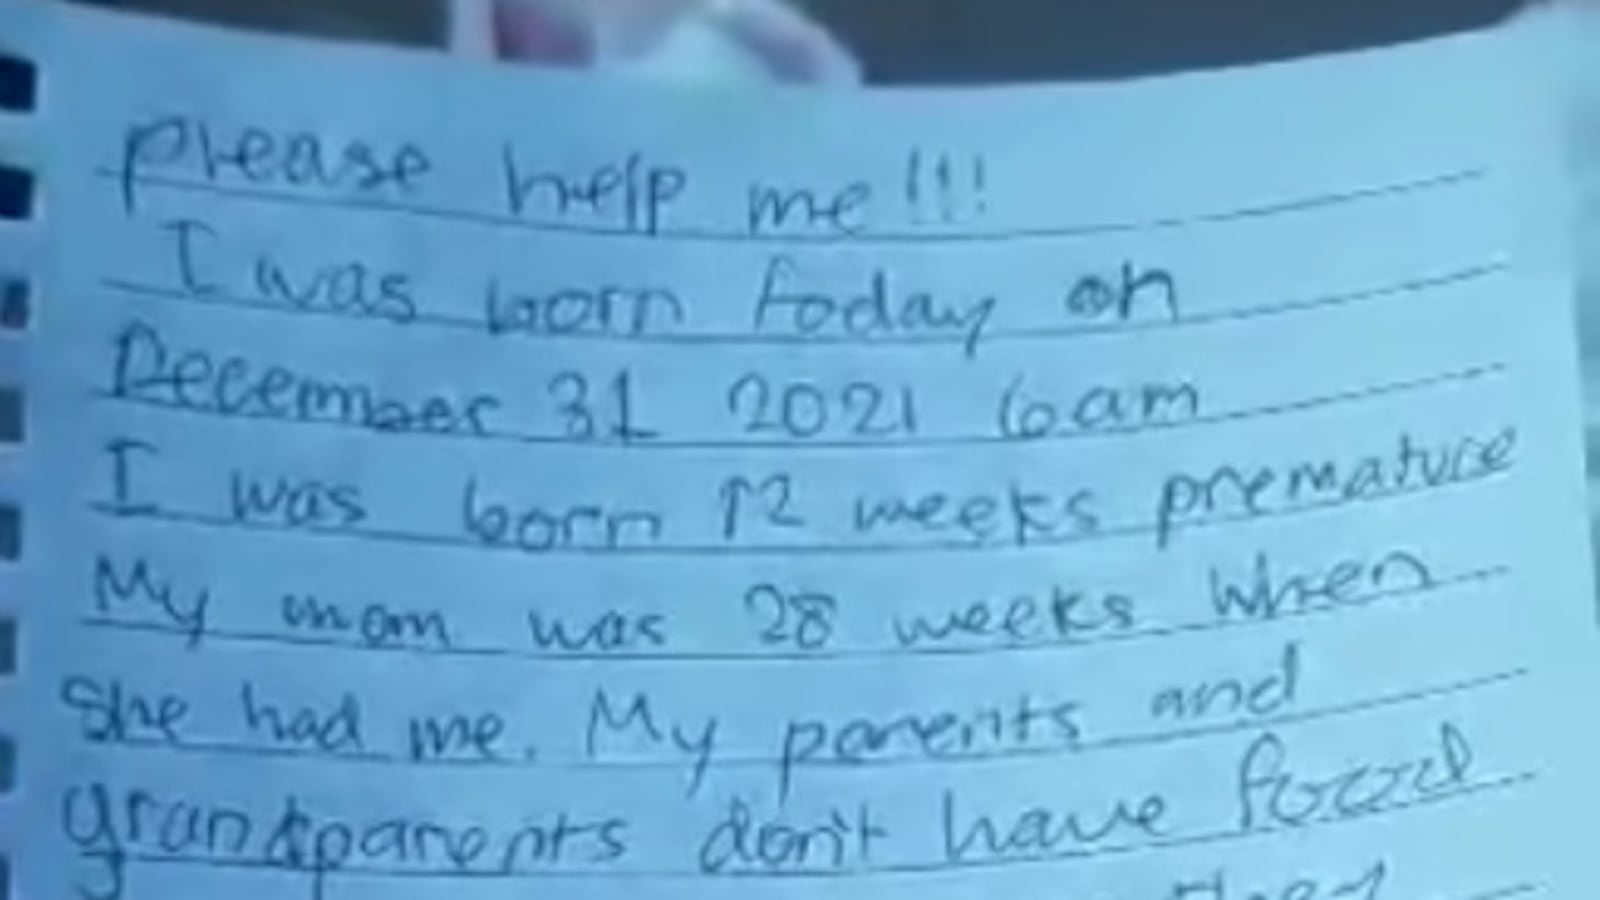 please help me!!!
I was born today on
December 31 2021 6am
I was born 12 weeks premature
My mom was 28 weeks when
she had me. My parents and
grandparents don't have food
they